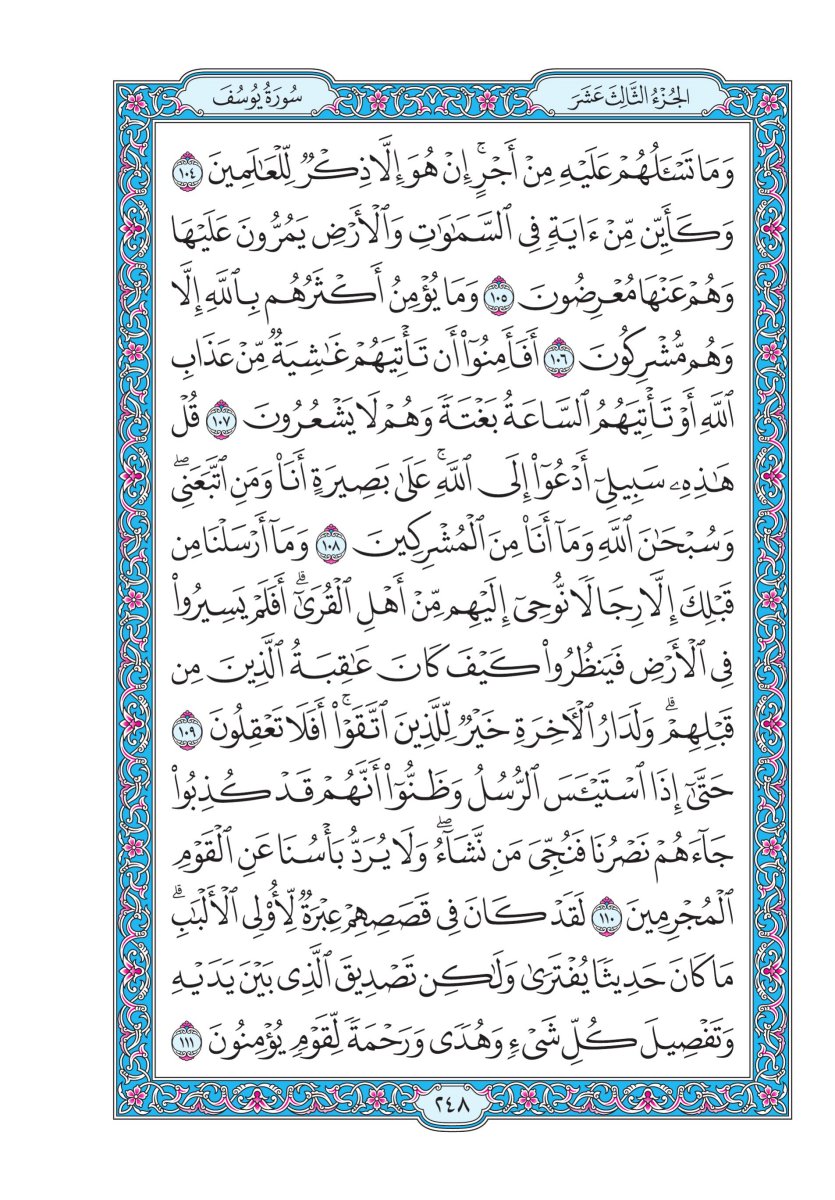 الجُزْءُ الثَّالِثَ عَشَرَ
سُورَةُ يُوسُفَ
وَمَا تَسْـَٔلُهُمْ عَلَيْهِ مِنْ أَجْرٍۚ إِنْ هُوَ إِلَّا ذِكْرٌۭ لِّلْعَـٰلَمِينَ ١٠٤
وَكَأَيِّن مِّنْ ءَايَةٍۢ فِى ٱلسَّمَـٰوَٰتِ وَٱلْأَرْضِ يَمُرُّونَ عَلَيْهَا
وَهُمْ عَنْهَا مُعْرِضُونَ ١٠٥ وَمَا يُؤْمِنُ أَكْثَرُهُم بِٱللَّهِ إِلَّا
وَهُم مُّشْرِكُونَ ١٠٦ أَفَأَمِنُوٓا۟ أَن تَأْتِيَهُمْ غَـٰشِيَةٌۭ مِّنْ عَذَابِ
ٱللَّهِ أَوْ تَأْتِيَهُمُ ٱلسَّاعَةُ بَغْتَةًۭ وَهُمْ لَا يَشْعُرُونَ ١٠٧ قُلْ
هَـٰذِهِۦ سَبِيلِىٓ أَدْعُوٓا۟ إِلَى ٱللَّهِۚ عَلَىٰ بَصِيرَةٍ أَنَا۠ وَمَنِ ٱتَّبَعَنِىۖ
وَسُبْحَـٰنَ ٱللَّهِ وَمَآ أَنَا۠ مِنَ ٱلْمُشْرِكِينَ ١٠٨ وَمَآ أَرْسَلْنَا مِن
قَبْلِكَ إِلَّا رِجَالًۭا نُّوحِىٓ إِلَيْهِم مِّنْ أَهْلِ ٱلْقُرَىٰٓۗ أَفَلَمْ يَسِيرُوا۟
فِى ٱلْأَرْضِ فَيَنظُرُوا۟ كَيْفَ كَانَ عَـٰقِبَةُ ٱلَّذِينَ مِن
قَبْلِهِمْۗ وَلَدَارُ ٱلْـَٔاخِرَةِ خَيْرٌۭ لِّلَّذِينَ ٱتَّقَوْا۟ۚ أَفَلَا تَعْقِلُونَ ١٠٩
حَتَّىٰٓ إِذَا ٱسْتَيْـَٔسَ ٱلرُّسُلُ وَظَنُّوٓا۟ أَنَّهُمْ قَدْ كُذِبُوا۟
جَآءَهُمْ نَصْرُنَا فَنُجِّىَ مَن نَّشَآءُۖ وَلَا يُرَدُّ بَأْسُنَا عَنِ ٱلْقَوْمِ
ٱلْمُجْرِمِينَ ١١٠ لَقَدْ كَانَ فِى قَصَصِهِمْ عِبْرَةٌۭ لِّأُو۟لِى ٱلْأَلْبَـٰبِۗ
مَا كَانَ حَدِيثًۭا يُفْتَرَىٰ وَلَـٰكِن تَصْدِيقَ ٱلَّذِى بَيْنَ يَدَيْهِ
وَتَفْصِيلَ كُلِّ شَىْءٍۢ وَهُدًۭى وَرَحْمَةًۭ لِّقَوْمٍۢ يُؤْمِنُونَ ١١١
٢٤٨